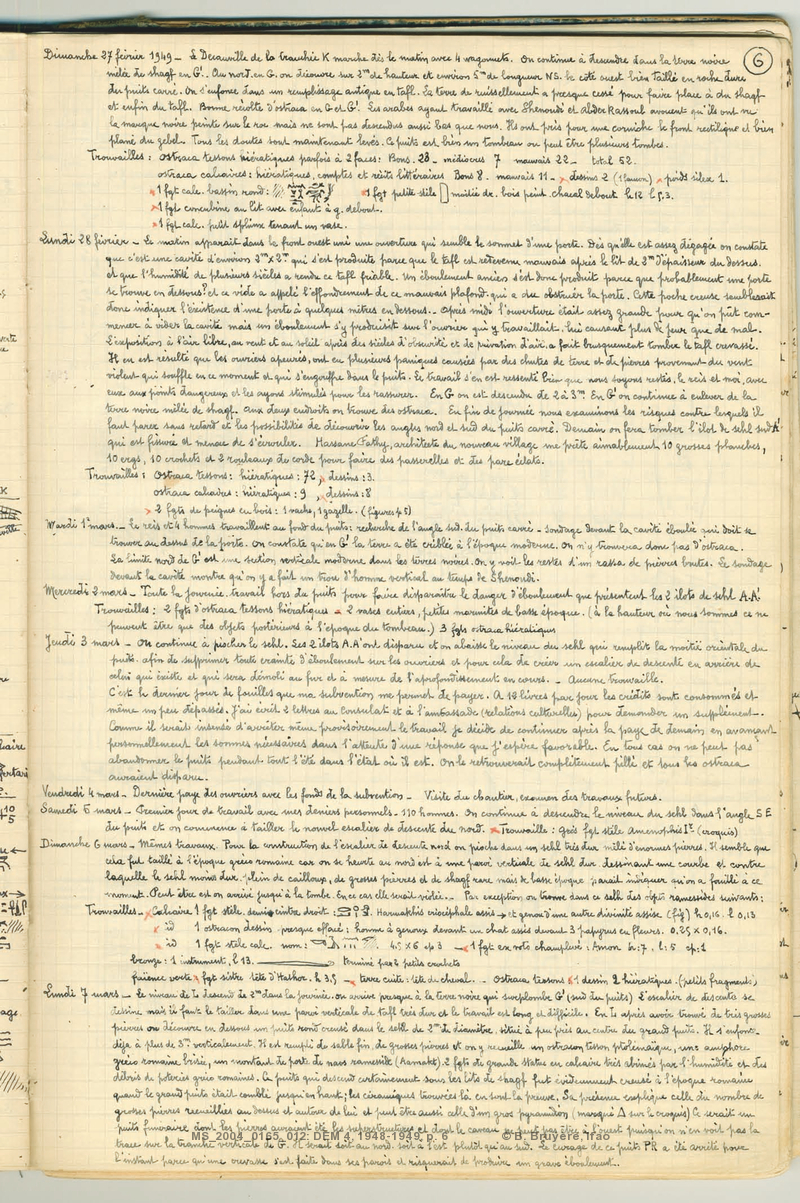 6
Dimanche 27 février 1949 - Le Decauville de la tranchée K marche dès le matin avec 4 wagonnets. On continue à descendre dans la terre noire
mêlée de shagf en G'. Au nord en G. on découvre sur 2m de hauteur et environ 5m de longueur NS. le côté ouest bien taillé en roche dure
du puits carré. On s'enfonce dans un remplissage antique en tafl. La terre de ruissellement a presque cessé pour faire place à du shagf
et enfin du tafl. Bonne récolte d'ostraca en G et G'. Les arabes ayant travaillé avec Shenoudi et Abder Rassoul avouent qu'ils ont vu
la marque noire peinte sur le roc mais ne sont pas descendus aussi bas que nous. Ils ont pris pour une corniche le front rectiligne et bien
plané du gebel. Tous les doutes sont maintenant levés. Ce puits est bien un tombeau ou peut être plusieurs tombes.
Trouvailles : Ostraca tessons hiératiques parfois à 2 faces : Bons. 23 - médiocres 7 mauvais 22 - total 52.
ostraca calcaires : hiératiques, comptes et récits littéraires Bons 8. mauvais 11 - dessins 2 poids silex 1.
1 fgt calc. bassin rond : 1 fgt petite stèle moitié dr. bois peint. chacal debout h.12 l.5.3.
1 fgt concubine au lit avec enfant à g. debout.
1 fgt calc. petit sphinx tenant un vase.
Lundi 28 février - Le matin apparait dans le front ouest uni une ouverture qui semble le sommet d'une porte. Dès qu'elle est assez dégagée on constate
que c'est une cavité d'environ 3m x 2m qui s'est produite parce que le tafl est devenu mauvais après le lit de 2m d'épaisseur du dessus.
et que l'humidité de plusieurs siècles a rendu ce tafl friable. Un éboulement ancien s'est donc produit parce que probablement une porte
se trouve en dessous? et ce vide a appelé l'effondrement de ce mauvais plafond qui a du obstruer la porte. Cette poche creuse semblerait
donc indiquer l'existence d'une porte à quelques mètres en dessous. Après midi l'ouverture était assez grande pour qu'on pût com-
mencer à vider la cavité mais un éboulement s'y produisit sur l'ouvrier qui y travaillait, lui causant plus de peur que de mal.
L'exposition à l'air libre, au vent et au soleil après des siècles d'obscurité et de privation d'air a fait brusquement tomber le tafl crevassé.
Il en est résulté que les ouvriers apeurés, ont eu plusieurs paniques causées par des chutes de terre et de pierres provenant du vent
violent qui souffle en ce moment et qui s'engouffre dans le puits. Le travail s'en est ressenti bien que nous soyons restés, le reis et moi, avec
eux aux points dangereux et les ayons stimulés pour les rassurer. En G on est descendu de 2 à 3m. En G' on continue à enlever de la
terre noire mêlée de shagf. Aux deux endroits on trouve des ostraca. En fin de journée nous examinons les risques contre lesquels il
faut parer sans retard et les possibilités de découvrir les angles nord et sud du puits carré. Demain on fera tomber l'îlot de sehl sud A'
qui est fissuré et menace de s'écrouler. Hassane Fathy, architecte du nouveau village me prête aimablement 10 grosses planches,
10 ergs, 10 crochets et 2 rouleaux de corde pour faire des passerelles et des pare éclats.
Trouvailles : Ostraca tessons : hiératiques : 72, dessins : 3.
ostraca calcaires : hiératiques : 9, dessins : 8
2 fgts de peignes en bois : 1 vache, 1 gazelle. (figures p. 5)
Mardi 1er mars. - Le reis et 4 hommes travaillent au fond du puits : recherche de l'angle sud. du puits carré - sondage devant la cavité éboulée qui doit se
trouver au dessus de la porte. On constate qu'en G' la terre a été criblée à l'époque moderne. On n'y trouvera donc pas d'ostraca.
La limite nord de G' est une section verticale moderne dans les terres noires. On y voit les restes d'un rassa de pierres brutes. Le sondage
devant la cavité montre qu'on y a fait un trou d'homme vertical au temps de Shenoudi.
Mercredi 2 mars - Toute la journée. travail hors du puits pour faire disparaître le danger d'éboulement que présentent les 2 îlots de sehl A.A'
Trouvailles : 2 fgts d'ostraca tessons hiératiques - 2 vases entiers, petites marmites de basse époque. (à la hauteur où nous sommes ce ne
peuvent être que des objets postérieurs à l'époque du tombeau.) 3 fgts ostraca hiératiques
Jeudi 3 mars - On continue à piocher le sehl. Les 2 îlots A.A' ont disparu et on abaisse le niveau du sehl qui remplit la moitié orientale du
puits. afin de supprimer toute crainte d'éboulement sur les ouvriers et pour cela de créer un escalier de descente en arrière de
celui qui existe et qui sera démoli au fur et à mesure de l'approfondissement en cours. - Aucune trouvaille.
C'est le dernier jour de fouilles que ma subvention me permet de payer. A 12 livres par jour les crédits sont consommés et
même un peu dépassés. J'ai écrit 2 lettres au Consulat et à l'ambassade (relations culturelles) pour demander un supplément -
Comme il serait insensé d'arrêter même provisoirement le travail je décide de continuer après la paye de demain en avançant
personnellement les sommes nécessaires dans l'attente d'une réponse que j'espère favorable. En tous cas on ne peut pas
abandonner le puits pendant tout l'été dans l'état où il est. On le retrouverait complètement pillé et tous les ostraca
auraient disparu.
Vendredi 4 mars - Dernière paye des ouvriers avec les fonds de la subvention - Visite du chantier, examen des travaux futurs.
Samedi 5 mars - Premier jour de travail avec mes deniers personnels - 110 hommes. On continue à descendre le niveau du sehl dans l'angle SE
du puits et on commence à tailler le nouvel escalier de descente du nord. - Trouvaille : Grès fgt stèle Amenophis Ier (croquis)
Dimanche 6 mars - Mêmes travaux. Pour la construction de l'escalier de descente nord on pioche dans un sehl très dur mêlé d'énormes pierres. Il semble que
cela fut taillé à l'époque gréco romaine car on se heurte au nord est à une paroi verticale de sehl dur. dessinant une courbe et contre
laquelle le sehl moins dur. plein de cailloux, de grosses pierres et de shagf rare mais de basse époque. paraît indiquer qu'on a fouillé à ce
moment. Peut être est on arrivé jusqu'à la tombe. En ce cas elle serait violée. - Par exception on trouve dans ce sehl des objets ramessides suivants :
Trouvailles - Calcaire 1 fgt stèle cintre droit : Harmakhis criocéphale assis et genou d'une autre divinité assise (fig) h 0,16. l 0,13
id 1 ostracon dessin presque effacé : homme à genoux devant un chat assis devant 3 papyrus en fleurs. 0.25 x 0,16.
id 1 fgt stèle calc. nom : 4.5 x 6 ep 3 - 1 fgt ex voto champlevé : Amon h : 7, l : 5 ep : 1
bronze : 1 instrument, l 13. terminé par 2 petits crochets
faïence verte fgt sistre tête d'Hathor. h 3,5 - terre cuite : tête de cheval - Ostraca tessons 1 dessin 2 hiératiques. (petits fragments)
Lundi 7 mars - Le niveau de descend de 2m dans la journée. on arrive presque à la terre noire qui surplombe G' (sud du puits) L'escalier de descente se
dessine mais il faut le tailler dans une paroi verticale de tafl très dur et le travail est long et difficile. En après avoir trouvé de très grosses
pierres on découvre en dessous un puits rond creusé dans le sehl de 2m de diamètre, situé à peu près au centre du grand puits. Il s'enfonce
déjà à plus de 3m verticalement. Il est rempli de sable fin, de grosses pierres et on y recueille un ostracon tesson ptolémaïque, une amphore
gréco romaine brisée, un montant de porte de naos ramesside (Aamakt). 2 fgts de grande statue en calcaire très abîmés par l'humidité et des
débris de poteries gréco romaines. Ce puits qui descend certainement sous les lits de shagf fut évidemment creusé à l'époque romaine
quand le grand puits était comblé jusqu'en haut; les céramiques trouvées là en sont la preuve. Sa présence explique celle du nombre de
grosses pierres recueillies au dessus et autour de lui et peut être aussi celle d'un gros pyramidion (marqué Δ sur le croquis) Ce serait un
puits funéraire dont les pierres auraient été les superstructures et dont le caveau ne peut pas être à l'ouest puisqu'on n'en voit pas la
trace sur la tranche verticale de G. Il serait soit au nord. soit à l'est plutôt qu'au sud. Le curage de ce puits PR a été arrêté pour
l'instant parce qu'une crevasse s'est faite dans ses parois et risquerait de produire un grave éboulement.
MS_2004_0165_012: DEM 4, 1948-1949, p. 6 © B. Bruyère, Ifao